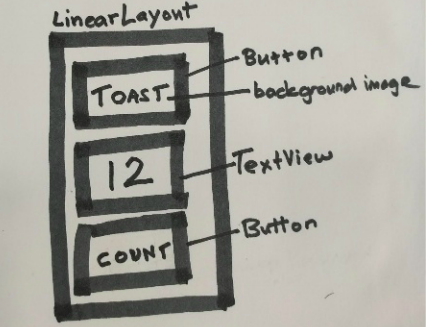 LinearLayout
Button
TOAST
background image
12
TextView
Button
COUNT